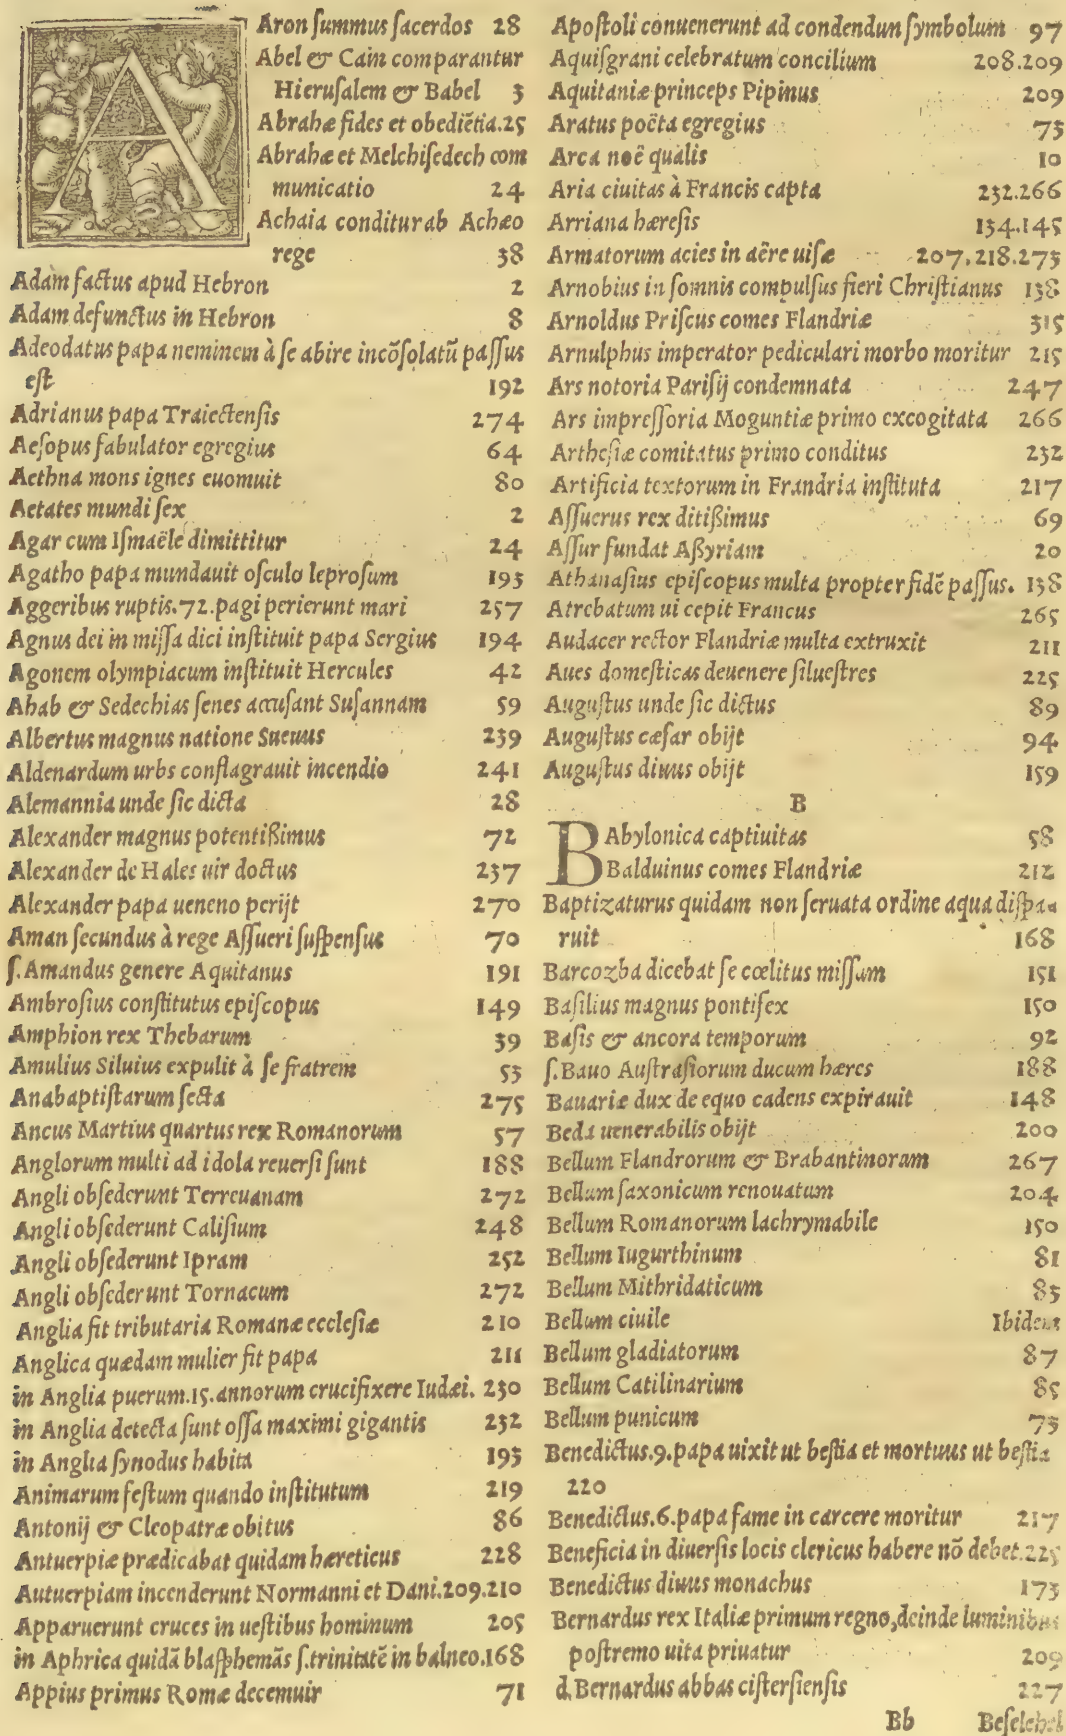 Aron ſummus ſacerdos 28
Abel & Cain comparantur
Hieruſalem & Babel 3
Abrahæ fides et obediẽtia.25
Abrahæ et Melchiſedech com
municatio 24
Achaia conditur ab Achæo
rege 38
Adam factus apud Hebron 2
Adam defunctus in Hebron 8
Adeodatus papa neminem à ſe abire incõſolatũ paſſus
eſt 192
Adrianus papa Traiectenſis 274
Aeſopus fabulator egregius 64
Aethna mons ignes euomuit 80
Aetates mundi ſex 2
Agar cum Iſmaële dimittitur 24
Agatho papa mundauit oſculo leproſum 193
Aggeribus ruptis.72.pagi perierunt mari 257
Agnus dei in miſſa dici inſtituit papa Sergius 194
Agonem olympiacum inſtituit Hercules 42
Ahab & Sedechias ſenes accuſant Suſannam 59
Albertus magnus natione Sueuus 239
Aldenardum urbs conflagrauit incendio 241
Alemannia unde ſic dicta 28
Alexander magnus potentißimus 72
Alexander de Hales uir doctus 237
Alexander papa ueneno perijt 270
Aman ſecundus à rege Aſſueri ſuſpenſus 70
ſ.Amandus genere Aquitanus 191
Ambroſius conſtitutus epiſcopus 149
Amphion rex Thebarum 39
Amulius Siluius expulit à ſe fratrem 53
Anabaptiſtarum ſecta 275
Ancus Martius quartus rex Romanorum 57
Anglorum multi ad idola reuerſi ſunt 188
Angli obſederunt Terreuanam 272
Angli obſederunt Caliſium 248
Angli obſederunt Ipram 252
Angli obſederunt Tornacum 272
Anglia fit tributaria Romanæ eccleſiæ 210
Anglica quædam mulier fit papa 211
in Anglia puerum.15.annorum crucifixere Iudæi. 230
in Anglia detecta ſunt oſſa maximi gigantis 232
in Anglia ſynodus habita 193
Animarum feſtum quando inſtitutum 219
Antonij & Cleopatræ obitus 86
Antuerpiæ prædicabat quidam hæreticus 228
Autuerpiam incenderunt Normanni et Dani.209.210
Apparuerunt cruces in ueſtibus hominum 205
in Aphrica quidã blaſphemãs ſ.trinitatẽ in balneo.168
Appius primus Romæ decemuir 71
Apoſtoli conuenerunt ad condendun ſymbolum 97
Aquiſgrani celebratum concilium 208.209
Aquitaniæ princeps Pipinus 209
Aratus poëta egregius 73
Arca noë qualis 10
Aria ciuitas à Francis capta 232.266
Arriana hæreſis 134.145
Armatorum acies in aëre uiſæ 207.218.273
Arnobius in ſomnis compulſus fieri Chriſtianus 138
Arnoldus Priſcus comes Flandriæ 315
Arnulphus imperator pediculari morbo moritur 215
Ars notoria Pariſij condemnata 247
Ars impreſſoria Moguntiæ primo excogitata 266
Artheſiæ comitatus primo conditus 232
Artificia textorum in Frandria inſtituta 217
Aſſuerus rex ditißimus 69
Aſſur fundat Aßyriam 20
Athanaſius epiſcopus multa propter fidẽ paſſus. 138
Atrebatum ui cepit Francus 265
Audacer rector Flandriæ multa extruxit 211
Aues domeſticas deuenere ſilueſtres 225
Auguſtus unde ſic dictus 89
Auguſtus cæſar obijt 94
Auguſtus diuus obijt 159
B
BAbylonica captiuitas 58
Balduinus comes Flandriæ 212
Baptizaturus quidam non ſeruata ordine aqua diſpa=
ruit 168
Barcozba dicebat ſe cœlitus miſſum 151
Baſilius magnus pontifex 150
Baſis & ancora temporum 92
ſ.Bauo Auſtraſiorum ducum hæres 188
Bauariæ dux de equo cadens expirauit 148
Beda uenerabilis obijt 200
Bellum Flandrorum & Brabantinorum 267
Bellum ſaxonicum renouatum 204
Bellum Romanorum lachrymabile 150
Bellum Iugurthinum 81
Bellum Mithridaticum 83
Bellum ciuile Ibidem
Bellum gladiatorum 87
Bellum Catilinarium 85
Bellum punicum 73
Benedictus.9.papa uixit ut beſtia et mortuus ut beſtia
220
Benedictus.6.papa fame in carcere moritur 217
Beneficia in diuerſis locis clericus habere nõ debet.225
Benedictus diuus monachus 173
Bernardus rex Italiæ primum regno,deinde luminibus
poſtremo uita priuatur 209
d.Bernardus abbas ciſterſienſis 227
Bb Beſelehel